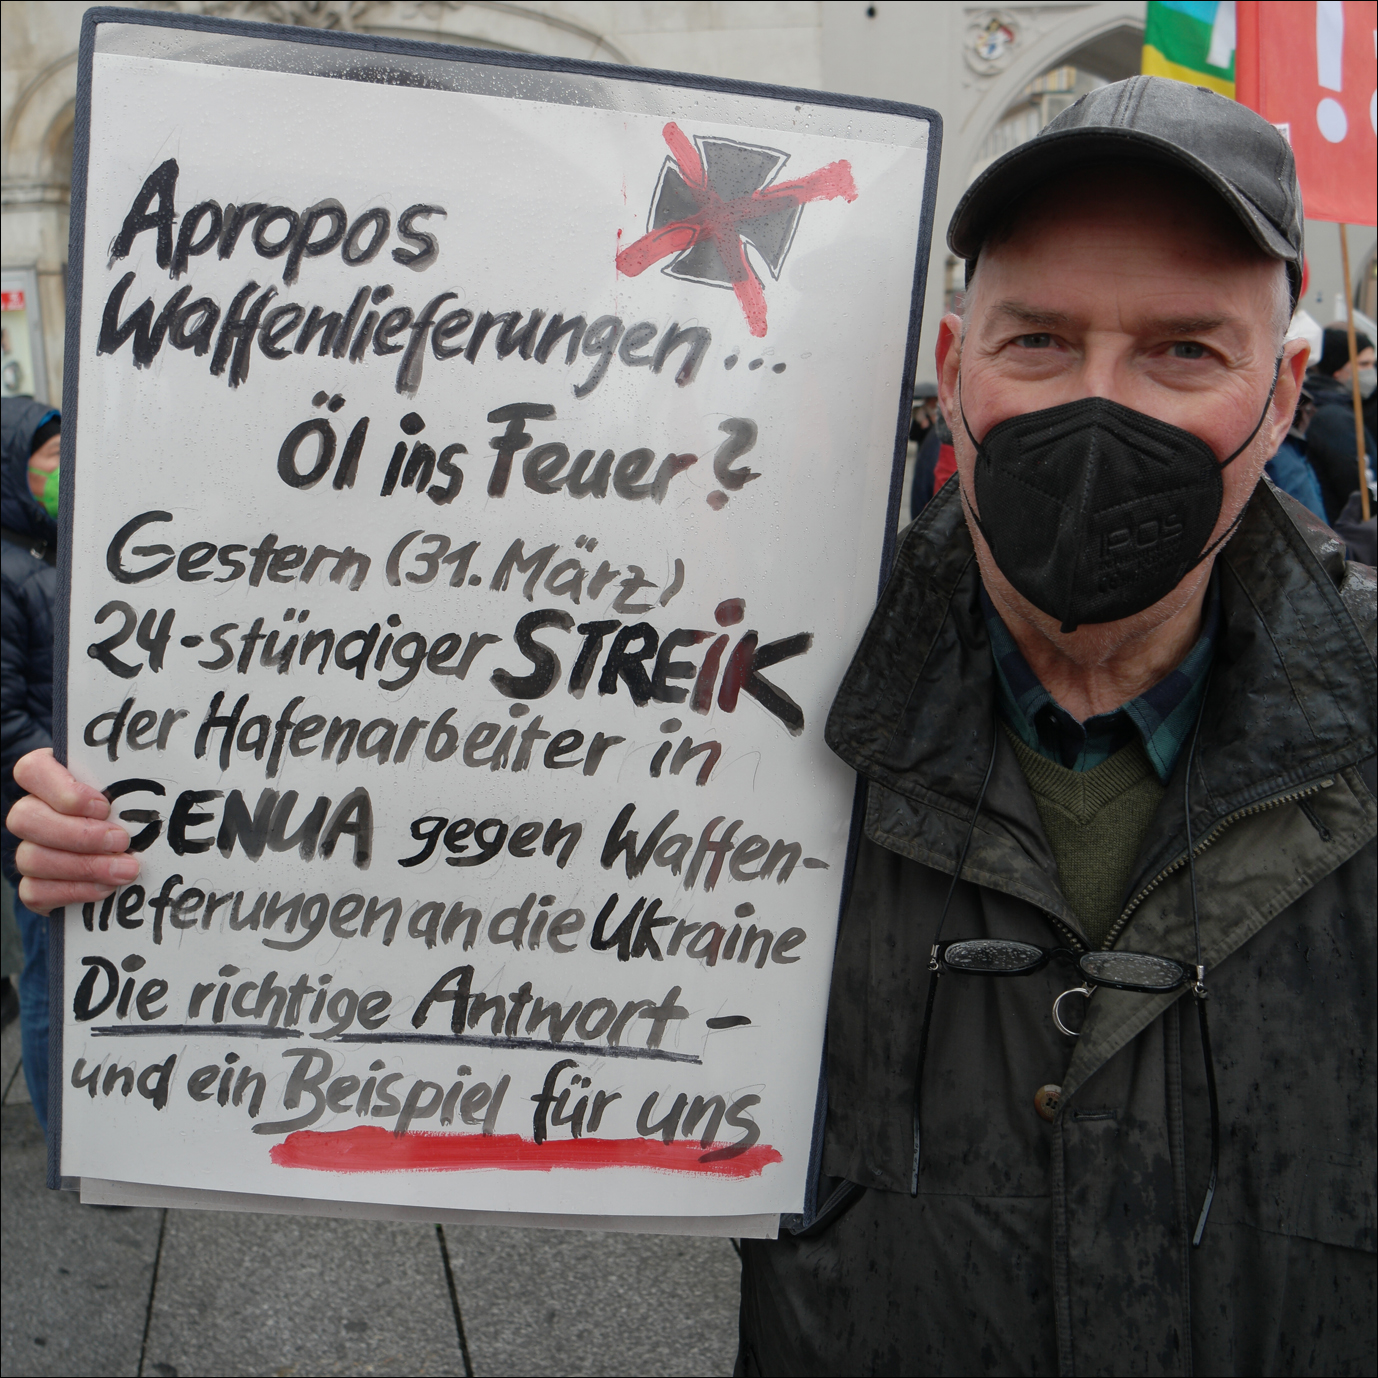 Apropos
Waffenlieferungen...
Öl ins Feuer?
Gestern (31. März)
24-stündiger STREiK
der Hafenarbeiter in
GENUA gegen Waffen-
lieferungen an die Ukraine
Die richtige Antwort -
und ein Beispiel für uns
IPOS
!